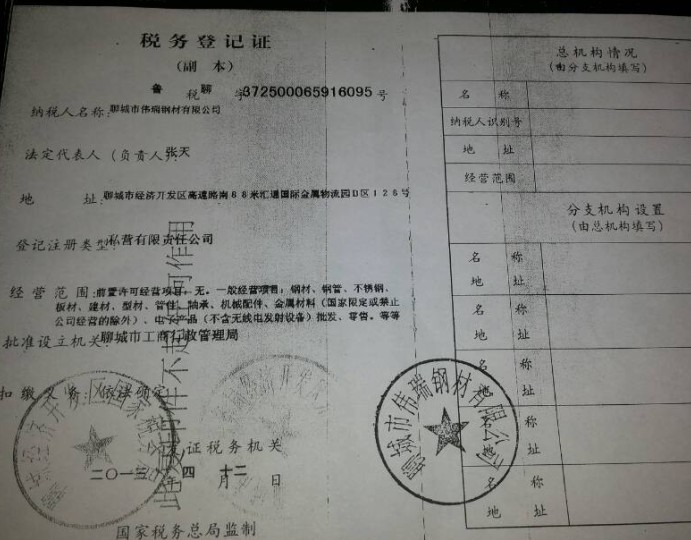 税务登记证
(副 本)
鲁 税 聊 字372500065916095 号
纳税人名称:聊城市伟瑞钢材有限公司
法定代表人(负责人)张天
地 址:聊城市经济开发区高速路南68米汇通国际金属物流园D区126号
登记注册类型:私营有限责任公司
经 营 范 围:前置许可经营项目:无。一般经营项目:钢材、钢管、不锈钢、
板材、建材、型材、管件、轴承、机械配件、金属材料(国家限定或禁止
公司经营的除外)、电子产品(不含无线电发射设备)批发、零售。等等
批准设立机关:聊城市工商行政管理局
扣 缴 义 务:依法确定
发证税务机关
二〇一三年 四 月 十二 日
国家税务总局监制
聊城市伟瑞钢材有限公司
总机构情况
(由分支机构填写)
名 称
纳税人识别号
地 址
经营范围
分支机构设置
(由总机构填写)
名 称
地 址
名 称
地 址
名 称
地 址
名 称
地 址
名 称
地 址